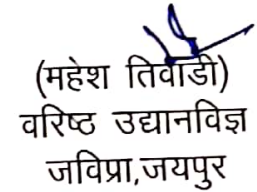 (महेश तिवाडी)
वरिष्ठ उद्यानविज्ञ
जविप्रा,जयपुर